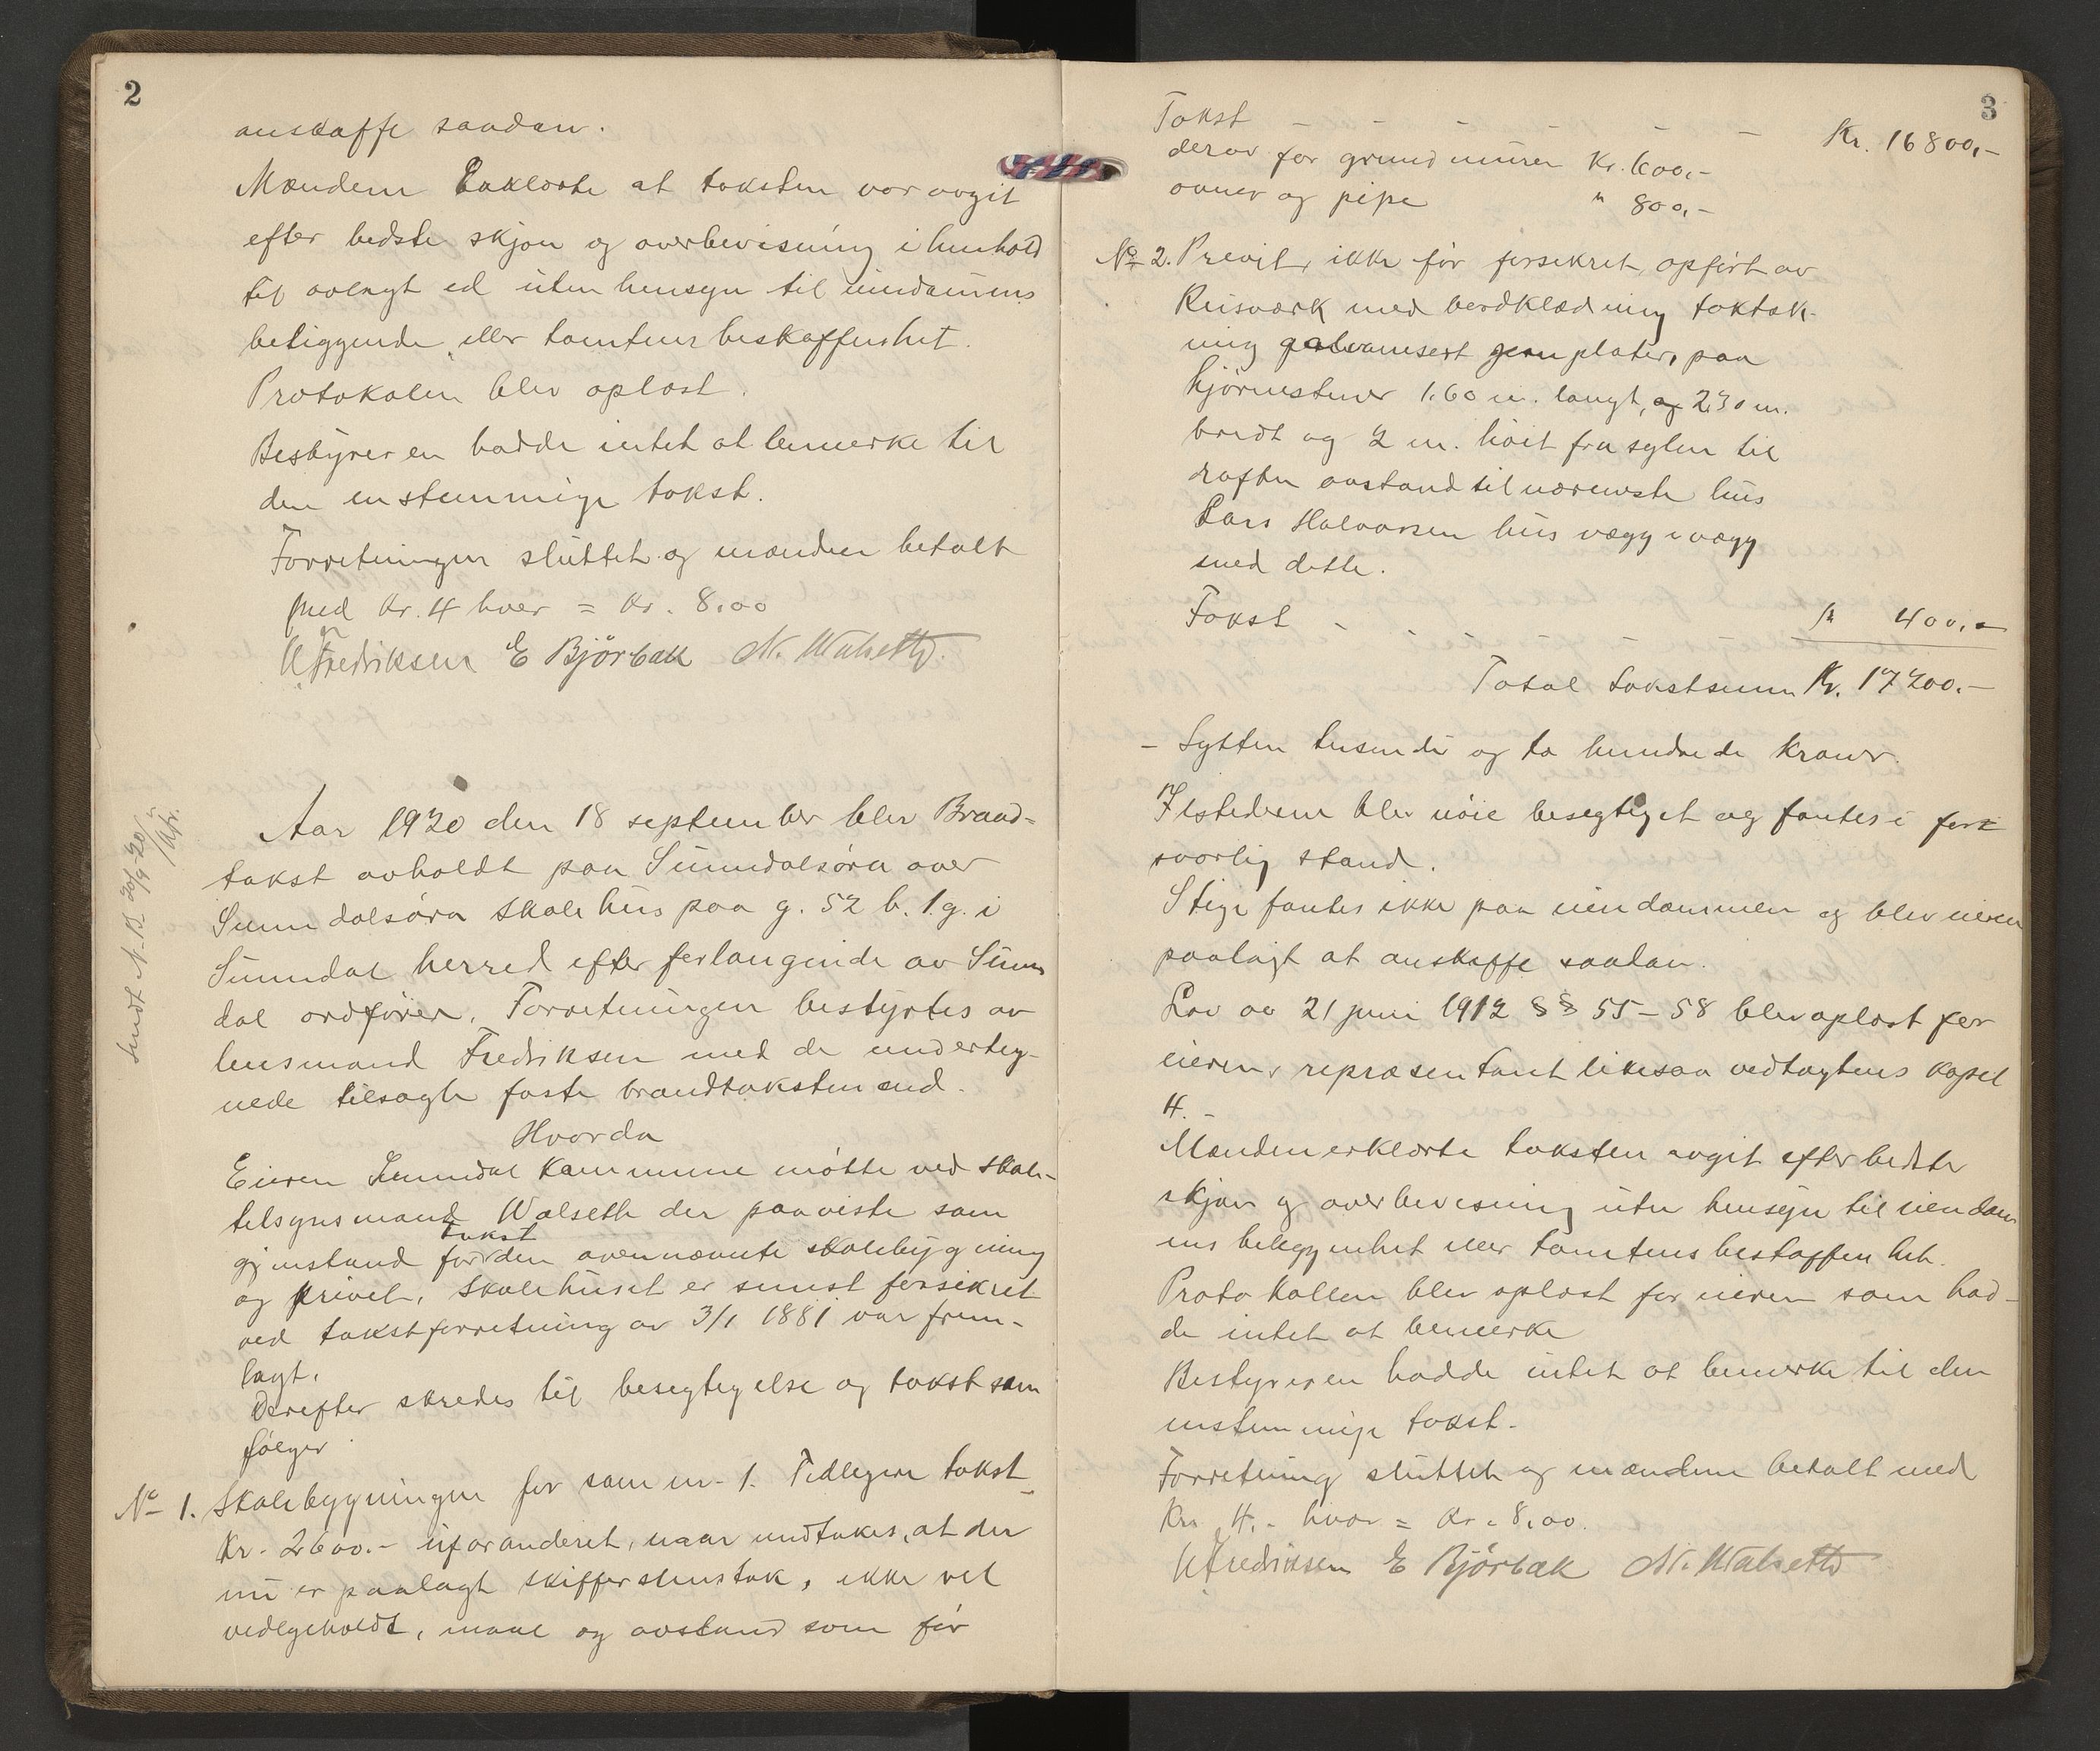 2
anskaffe saadan.
Mændene Erklærte at taksten var avgit
efter bedste skjøn og overbevisning i henhold
til avlagt ed uten hensyn til eiendommens
beliggende eller tomtens beskaffenhet.
Protokolen blev oplæst.
Bestyreren hadde intet at bemerke til
den enstemmige takst.
Forretningen sluttet og mændene betalt
med Kr. 4 hver = Kr. 8,00
Fredriksen E Björbak N. Walseth
Sendt N.B. 20/9-20
Aar 1920 den 18 september blev Brand-
takst avholdt paa Sunndalsøra over
Sunndalsøra skolehus paa g. 52 b. 1 g. i
Sunndal herred efter forlangende av Sunn
dal ordfører. Forretningen bestyrtes av
lensmand Fredriksen med de underteg-
nede tilsagte faste brandtakstmænd.
Hvorda
Eieren Sunndal Kommune møtte ved skole-
tilsynsmand Walseth der paaviste som
takst
gjenstand for den ovennævnte skolebygning
og privet. Skolehuset er senest forsikret
ved takstforretning av 3/1 1881 var frem-
lagt.
Derefter skredes til besegtigelse og takst som
følger
No 1. Skolebygningen før som nr. 1. Tidligere takst
Kr. 2600.- uforandret, naar undtakes, at der
nu er paalagt skifferstenstak, ikke vel
vedlgeholdt, maal og avstand som før
3
Takst - - - - - - Kr. 16800,-
derav for grundmuren Kr. 600,-
ovner og pipe " 800,-
No 2. Privet, ikke før forsikret, opført av
Reisværk med bordklædning taktæk-
ning galvanisert jernplater, paa
hjørnestener 1.60 m. langt, og 2.30 m.
bredt og 2 m. høit fra sylen til
raften avstand til nærmeste hus
Lars Halvorsen hus vægg i vægg
med dette.
Takst - - - - - - " 400,-
Total takstsum Kr. 17200.-
- Sytten tusinde og to hundrede kroner.
Ildstederne blev nøie besegtiget og fantes i for-
svarlig stand.
Stige fantes ikke paa eiendommen og blev eieren
paalagt at anskaffe saadan.
Lov av 21 juni 1912 § § 55-58 blev oplæst for
eierens repræsentant likesaa vedtægtens kapel
4.-
Mændene erklærte taksten avgit efter bedste
skjøn og overbevisning uten hensyn til eiendom
ens beliggenhet eller tomtens beskaffenhet.
Protokollen blev oplæst for eieren som had-
de intet at bemerke
Bestyreren hadde intet at bemerke til den
enstemmige takst.
Forretning sluttet og mændene betalt med
Kr. 4.- hver = Kr. 8,00.
Fredriksen E Björbak N. Walseth